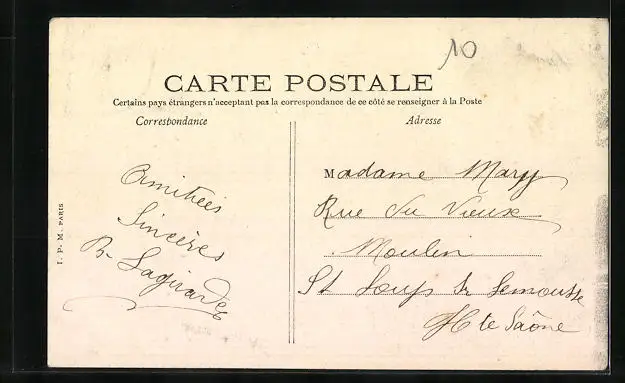 10
CARTE POSTALE
Certains pays étrangers n'acceptant pas la correspondance de ce côté se renseigner à la Poste
Correspondance
Adresse
Amitiées
Sincères
B. Lagirarde
Madame Mary
Rue du Vieux
Moulin
St Loup Sr Semousse
Hte Saône
I. P. M. PARIS